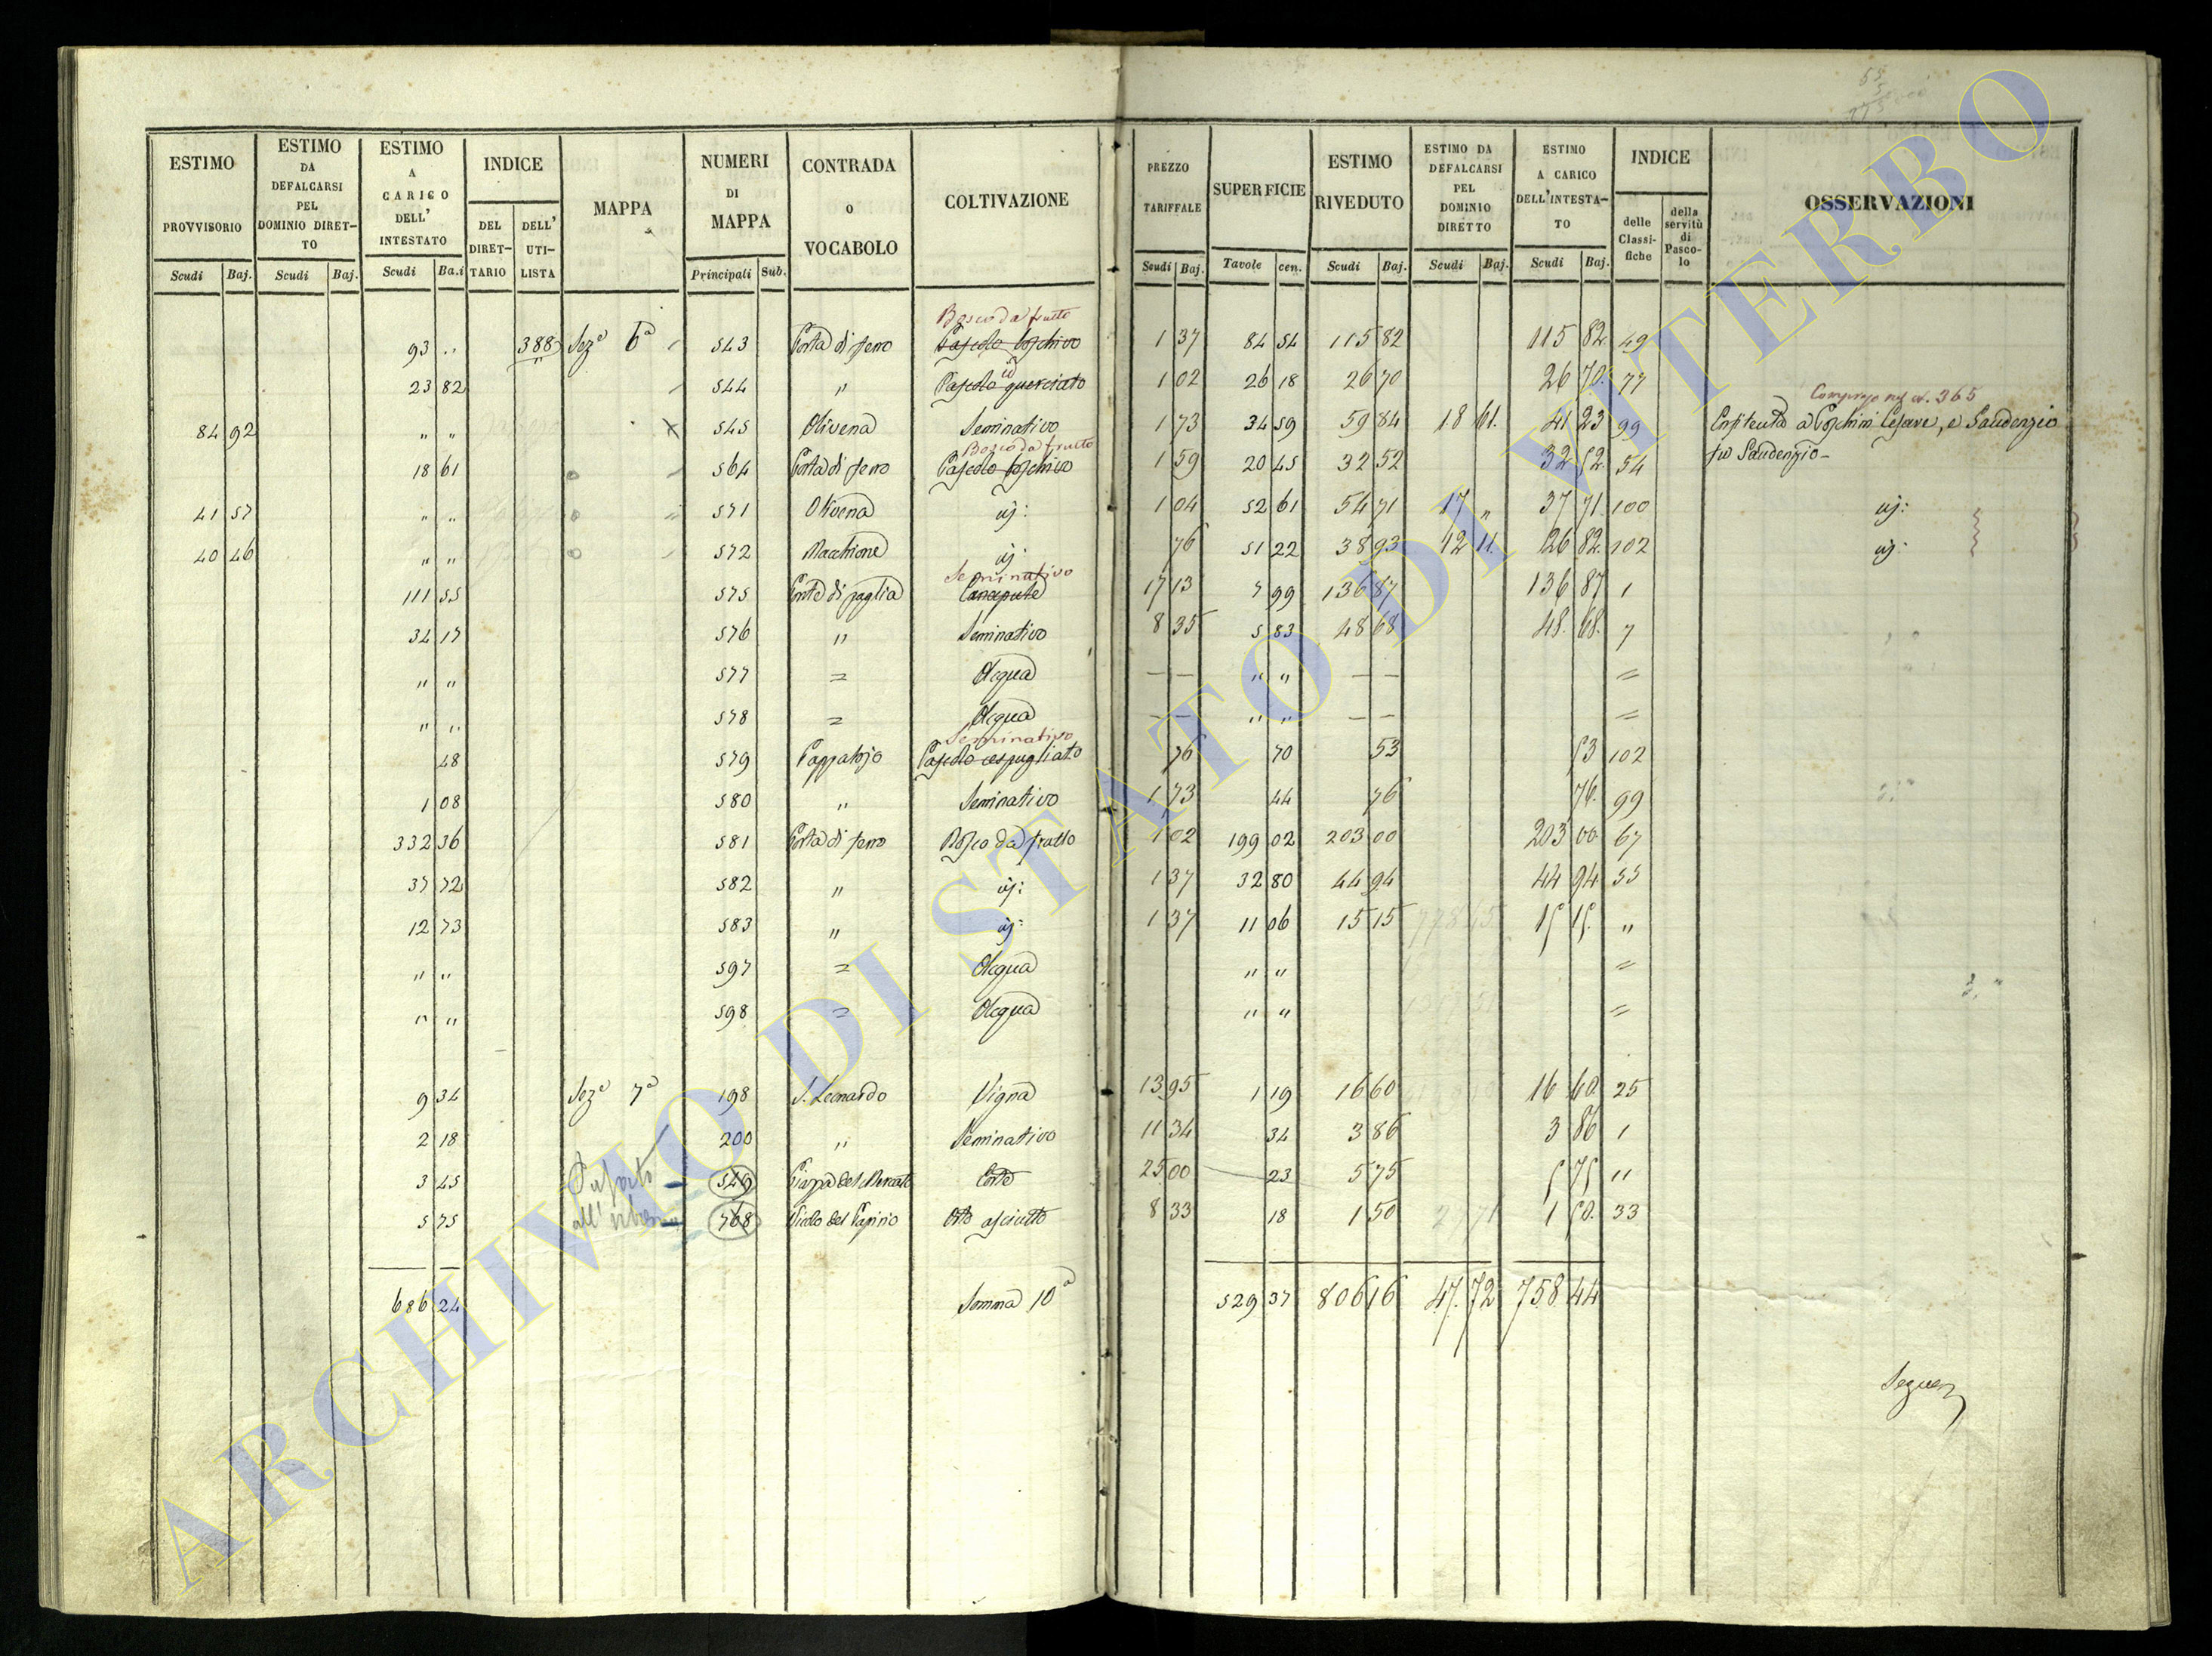 ESTIMO PROVVISORIO Scudi Baj. | ESTIMO DA DEFALCARSI PEL DOMINIO DIRET-TO Scudi Baj. | ESTIMO A CARICO DELL' INTESTATO Scudi Ba.i | INDICE DEL DIRET-TARIO DELL' UTI-LISTA | MAPPA | NUMERI DI MAPPA Principali Sub. | CONTRADA O VOCABOLO | COLTIVAZIONE | PREZZO TARIFFALE Scudi Baj. | SUPERFICIE Tavole cen. | ESTIMO RIVEDUTO Scudi Baj. | ESTIMO DA DEFALCARSI PEL DOMINIO DIRETTO Scudi Baj. | ESTIMO A CARICO DELL'INTESTA-TO Scudi Baj. | INDICE delle Classi-fiche della servitù di Pasco-lo | OSSERVAZIONI
Bosco da frutto
93 .. 388 Sez.e 6a 543 Porta di ferro Pascolo boschivo 1 37 84 54 115 82 115 82 49
23 82 544 " Pascolo querciato 1 02 26 18 26 70 26 70 77
Compreso nel n. 365
84 92 " " 545 Olivena Seminativo 1 73 34 59 59 84 18 61 41 23 99 Enfiteuta a Cesare, e Gaudenzio
Bosco da frutto
18 61 564 Porta di ferro Pascolo boschivo 1 59 20 45 32 52 32 52 54 fu Gaudenzio
41 57 " " 571 Olivena iij: 1 04 52 61 54 71 17 " 37 71 100 iij:
40 46 " " 572 Macchione iij 76 51 22 38 93 12 11 26 82 102 iij:
Seminativo
111 55 575 Ponte di paglia Canepule 17 13 7 99 136 87 136 87 1
34 17 576 " Seminativo 8 35 5 83 48 68 48 68 7
" " 577 = Acqua — — " " — — =
" " 578 = Acqua — — " " — — =
Seminativo
48 579 Pappatojo Pascolo cespugliato 76 70 53 53 102
1 08 580 " Seminativo 1 73 44 76 76 99
332 36 581 Porta di ferro Bosco da frutto 1 02 199 02 203 00 203 00 67
37 72 582 " iij: 1 37 32 80 44 94 44 94 55
12 73 583 " iij: 1 37 11 06 15 15 15 15 "
" " 597 = Acqua " " =
" " 598 = Acqua " " =
9 34 Sez.e 7a 198 S. Leonardo Vigna 13 95 1 19 16 60 16 60 25
2 18 200 " Seminativo 11 34 34 3 86 3 86 1
3 45 Passato 546 Piazza del Mercato Corte 25 00 23 5 75 5 75 "
5 75 all' urbano 768 Vicolo del Orto asciutto 8 33 18 1 50 1 50 33
686 24 Somma 10a 529 37 806 16 47 72 758 44
Segue
ARCHIVIO DI STATO DI VITERBO